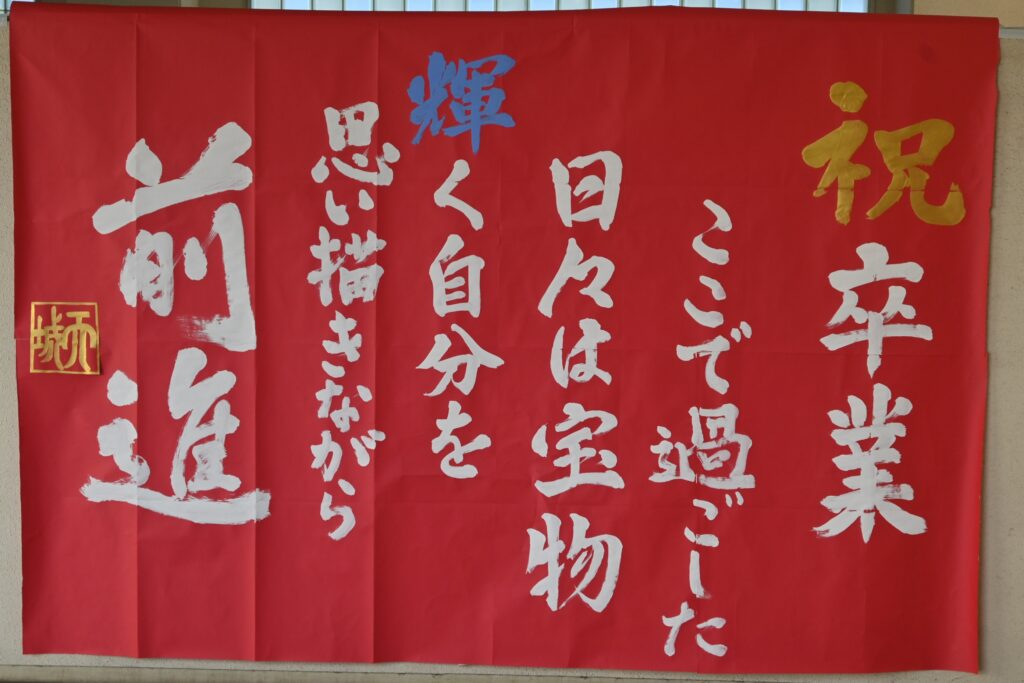 祝卒業
ここで過ごした
日々は宝物
輝く自分を
思い描きながら
前進